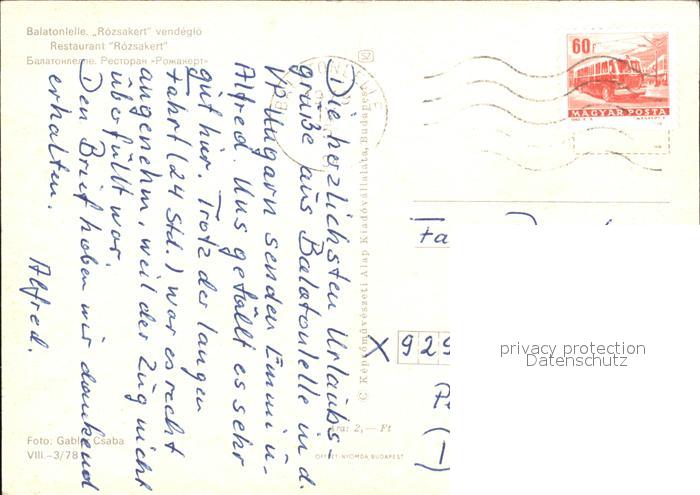 Balatonlelle. „Rózsakert” vendéglő
Restaurant "Rózsakert"
Балатонлелле. Ресторан «Рожакерт»
Die herzlichsten Urlaubs-
grüße aus Balatonlelle in d.
VR Ungarn senden Emmi u.
Alfred. Uns gefällt es sehr
gut hier. Trotz der langen
Fahrt (24 Std.) war es recht
angenehm, weil der Zug nicht
überfüllt war.
Den Brief haben wir dankend
erhalten.
Alfred.
Foto: Gabler Csaba
VIII.–3/78
© Képzőművészeti Alap Kiadóvállalata, Budapest
Ára: 2,— Ft
OFFSET-NYOMDA, BUDAPEST
60f
MAGYAR POSTA
Fa
X 929
privacy protection
Datenschutz